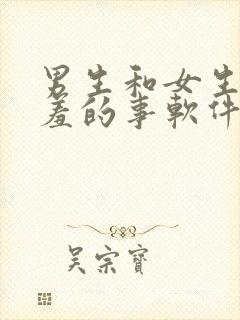 男生和女生
羞的事軟件
吴宗寶